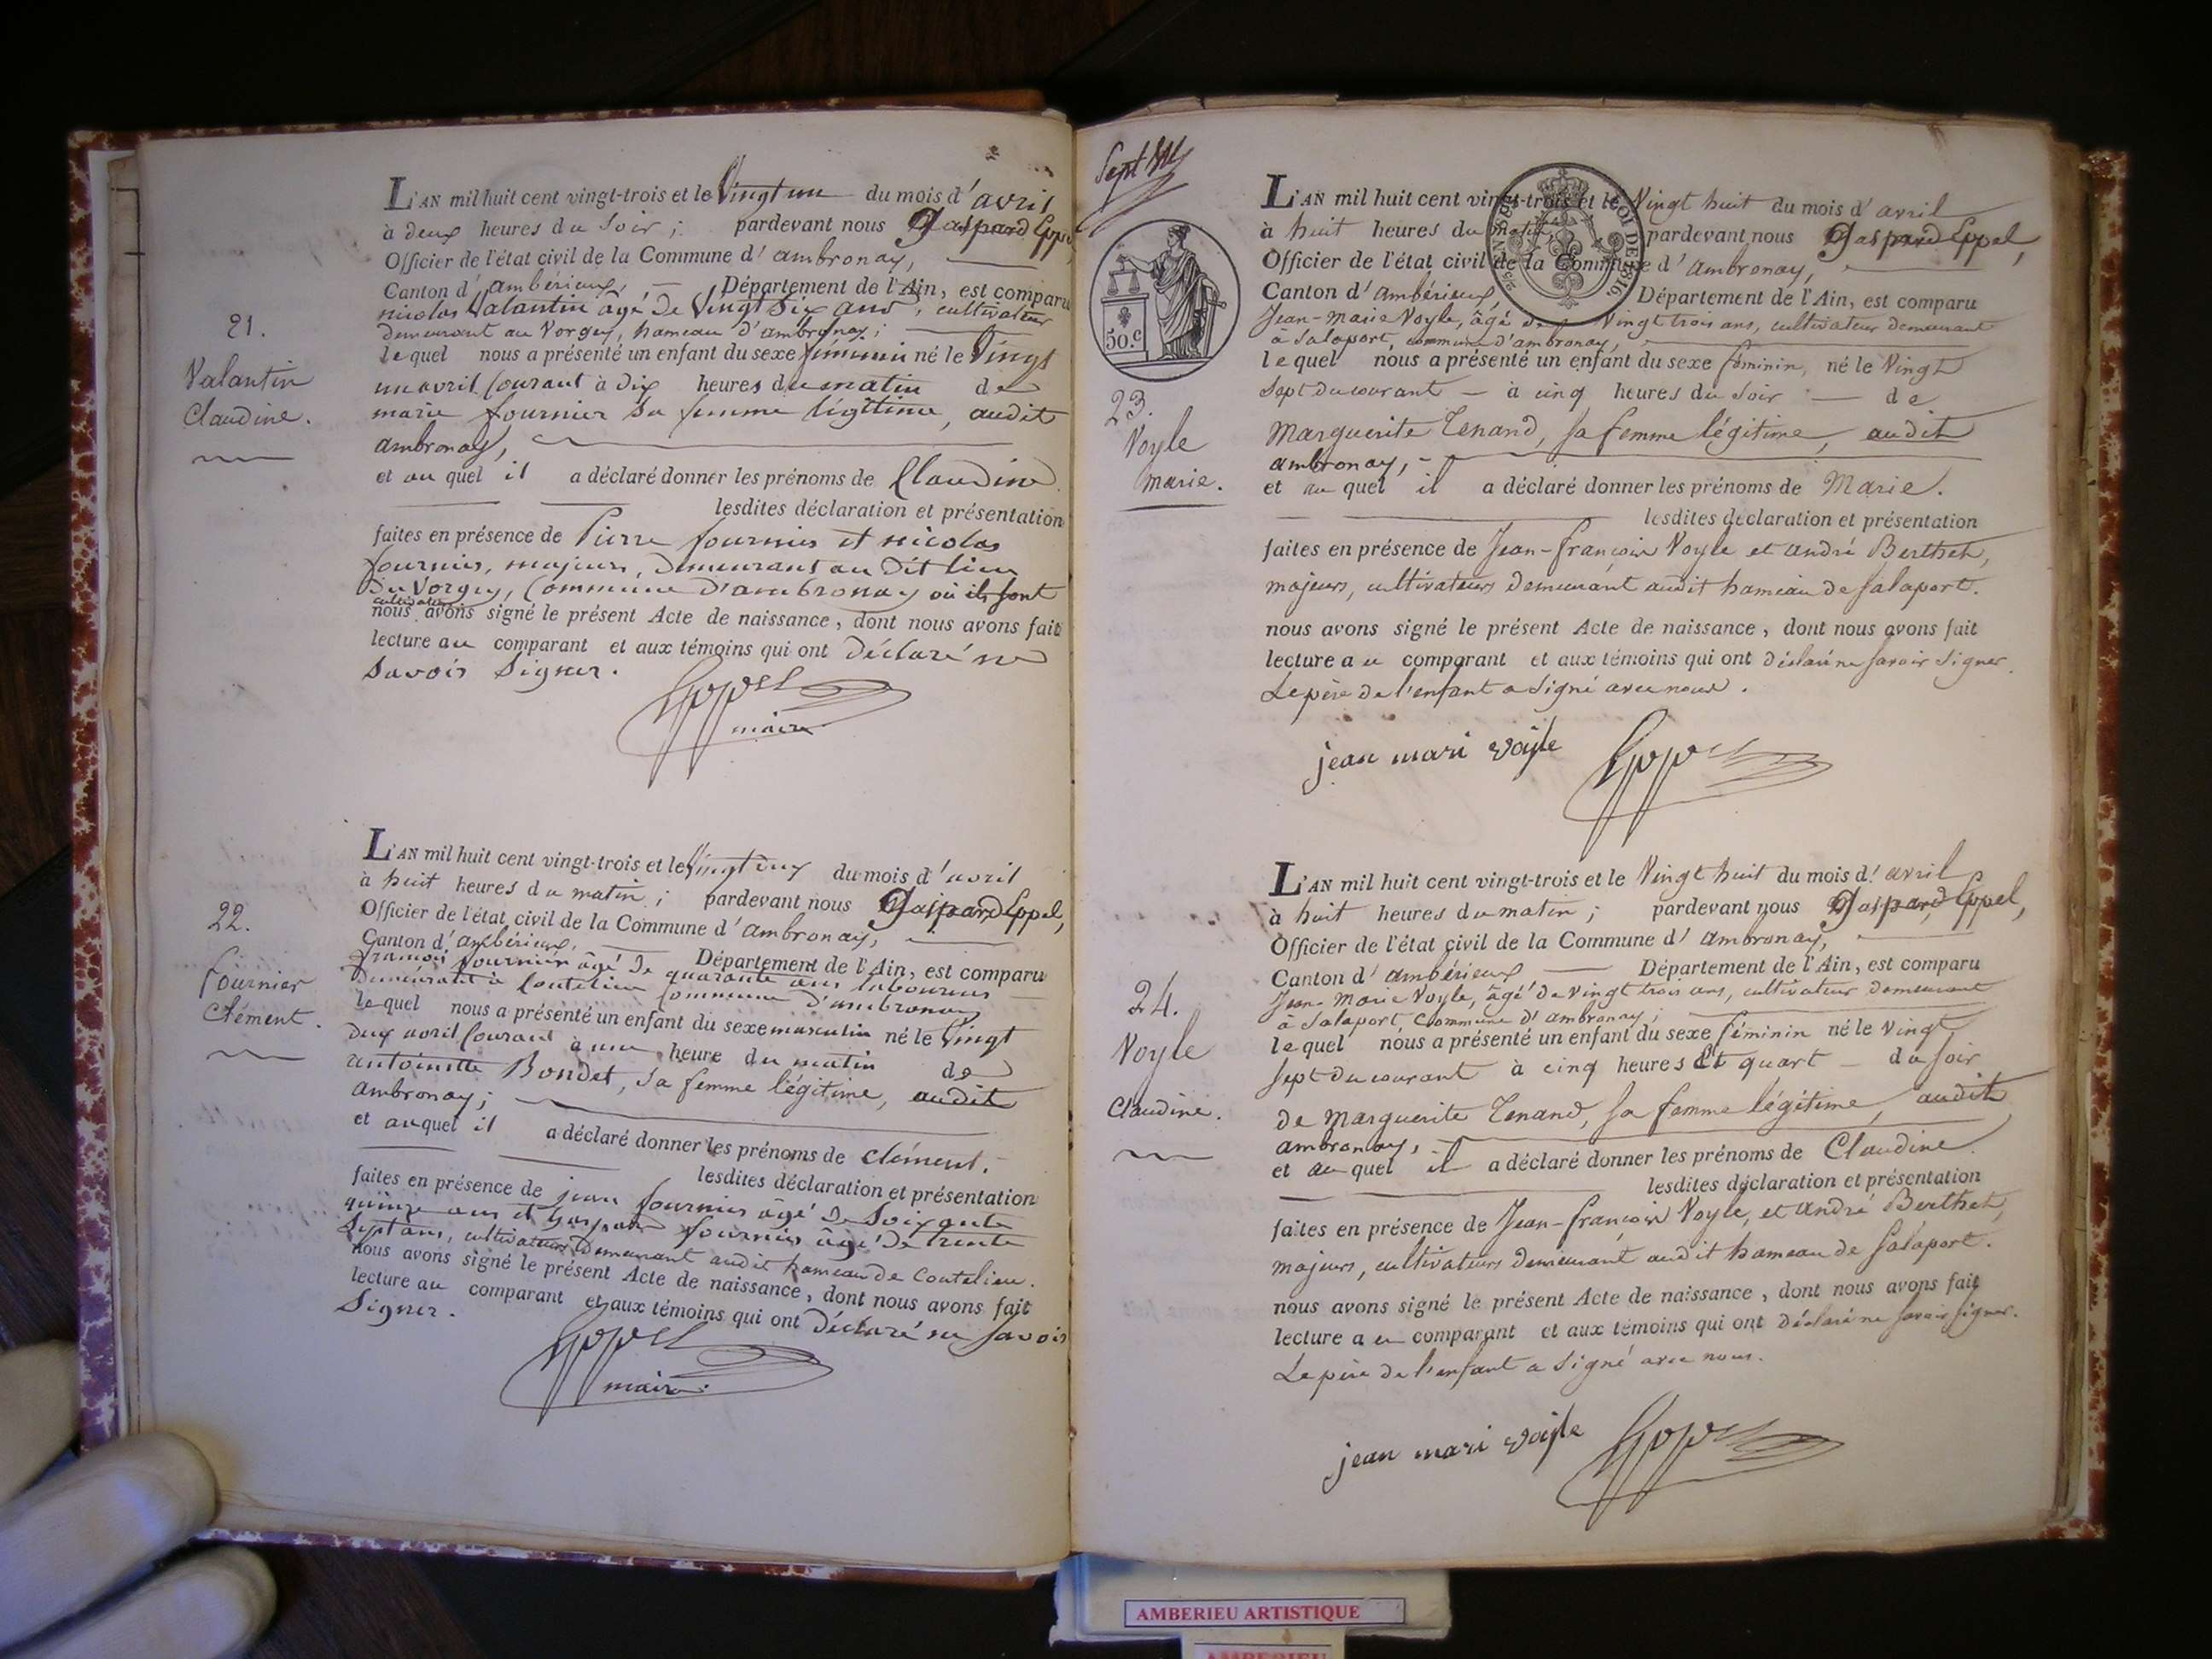 21.
Valantin
Claudine.
L'AN mil huit cent vingt-trois et le Vingt un du mois d'avril
à deux heures du soir ; pardevant nous Gaspard Eppel
Officier de l'état civil de la Commune d'ambronay,
Canton d'ambérieux, Département de l'Ain, est comparu
nicolas Valantin agé de Vingt Six ans, cultivateur
demeurant au Vorgey, hameau d'ambronay ;
lequel nous a présenté un enfant du sexe féminin né le Vingt
un avril Courant à dix heures du matin de
marie fournier sa femme légitime, audit
ambronay,
et au quel il a déclaré donner les prénoms de Claudine
lesdites déclaration et présentation
faites en présence de Pierre fournier et nicolas
fournier, majeurs, demeurant au dit lieu
du Vorgey, Commune d'ambronay où ils sont
cultivateurs
nous avons signé le présent Acte de naissance, dont nous avons fait
lecture au comparant et aux témoins qui ont déclaré ne
Savoir Signer.
Eppel
maire
22.
fournier
Clément.
L'AN mil huit cent vingt-trois et le Vingt deux du mois d'avril
à huit heures du matin ; pardevant nous Gaspard Eppel,
Officier de l'état civil de la Commune d'ambronay,
Canton d'ambérieux, Département de l'Ain, est comparu
françois fournier âgé de quarante ans laboureur
demeurant à Coutelieu Commune d'ambronay
lequel nous a présenté un enfant du sexe masculin né le Vingt
deux avril Courant à une heure du matin de
antoinette Bondet, sa femme légitime, audit
ambronay ;
et au quel il a déclaré donner les prénoms de Clément.
lesdites déclaration et présentation
faites en présence de jean fournier âgé de Soixante
quinze ans et Gaspard fournier âgé de trente
Sept ans, cultivateurs demeurant audit hameau de Coutelieu.
nous avons signé le présent Acte de naissance, dont nous avons fait
lecture au comparant et aux témoins qui ont déclaré ne Savoir
Signer.
Eppel
maire.
Sept
50.c
ROI DE
1816.
23.
Voyle
marie.
L'AN mil huit cent vingt-trois et le Vingt huit du mois d'avril
à huit heures du matin pardevant nous Gaspard Eppel,
Officier de l'état civil de la Commune d'ambronay,
Canton d'ambérieux, Département de l'Ain, est comparu
Jean-Marie Voyle, âgé de Vingt trois ans, cultivateur demeurant
à Salaport, commune d'ambronay,
lequel nous a présenté un enfant du sexe féminin, né le Vingt
Sept du courant à cinq heures du Soir de
Marguerite Tenand, sa femme légitime, audit
ambronay,
et au quel il a déclaré donner les prénoms de Marie.
lesdites déclaration et présentation
faites en présence de Jean-françois Voyle et andré Berthet,
majeurs, cultivateurs demeurant audit hameau de Salaport.
nous avons signé le présent Acte de naissance, dont nous avons fait
lecture au comparant et aux témoins qui ont déclaré ne savoir signer.
Le père de l'enfant a signé avec nous.
jean mari voyle Eppel
24.
Voyle
Claudine.
L'AN mil huit cent vingt-trois et le Vingt huit du mois d'avril
à huit heures du matin ; pardevant nous Gaspard Eppel,
Officier de l'état civil de la Commune d'ambronay,
Canton d'ambérieux Département de l'Ain, est comparu
Jean-Marie Voyle, âgé de vingt trois ans, cultivateur demeurant
à Salaport, Commune d'ambronay ;
lequel nous a présenté un enfant du sexe féminin né le Vingt
Sept du courant à cinq heures Et quart du Soir
de Marguerite Tenand, sa femme légitime, audit
ambronay,
et au quel il a déclaré donner les prénoms de Claudine
lesdites déclaration et présentation
faites en présence de Jean-françois Voyle, et andré Berthet,
majeurs, cultivateurs demeurant audit hameau de Salaport.
nous avons signé le présent Acte de naissance, dont nous avons fait
lecture au comparant et aux témoins qui ont déclaré ne savoir signer.
Le père de l'enfant a signé avec nous.
jean mari voyle Eppel
AMBERIEU ARTISTIQUE
AMBERIEU